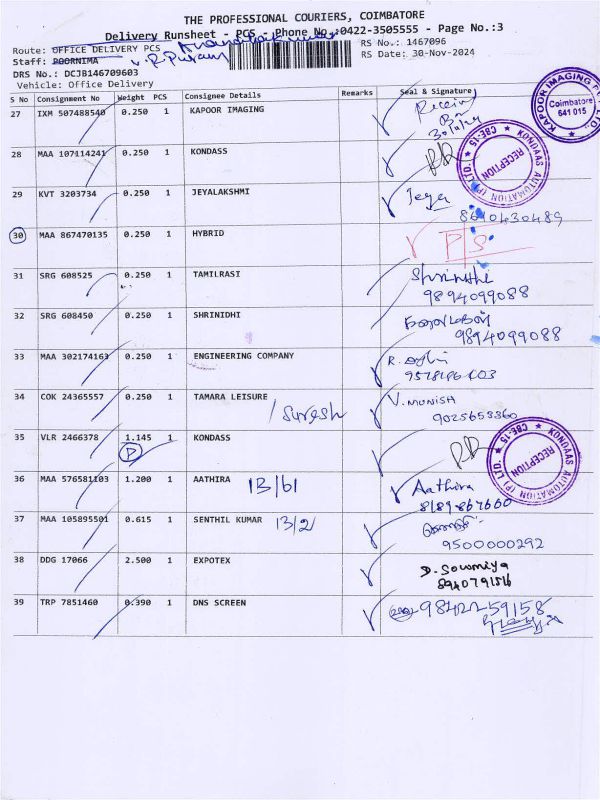 THE PROFESSIONAL COURIERS, COIMBATORE
Delivery Runsheet - PCS - Phone No.:0422-3505555 - Page No.:3
Route: OFFICE DELIVERY PCS
RS No.: 1467096
Staff: POORNIMA
RS Date: 30-Nov-2024
DRS No.: DCJB146709603
Vehicle: Office Delivery
S No Consignment No Weight PCS Consignee Details Remarks Seal & Signature
27 IXM 507488540 0.250 1 KAPOOR IMAGING
30/11/24
KAPOOR IMAGING Coimbatore 641 015
28 MAA 107114241 0.250 1 KONDASS
KONDAAS AUTOMATION (P) LTD. CBE-15 RECEPTION
29 KVT 3203734 0.250 1 JEYALAKSHMI Jeya
8610430489
30 MAA 867470135 0.250 1 HYBRID P S
31 SRG 608525 0.250 1 TAMILRASI Shrinidhi
9894099088
32 SRG 608450 0.250 1 SHRINIDHI
9894099088
33 MAA 302174163 0.250 1 ENGINEERING COMPANY
34 COK 24365557 0.250 1 TAMARA LEISURE / Suresh V. MUNISH
9025653360
35 VLR 2466378 1.145 1 KONDASS
P
KONDAAS AUTOMATION (P) LTD. CBE-15 RECEPTION
36 MAA 576581103 1.200 1 AATHIRA 13/61 Aathira
8189867660
37 MAA 105895501 0.615 1 SENTHIL KUMAR 13/2
9500000292
38 DDG 17066 2.500 1 EXPOTEX D. Sowmiya
39 TRP 7851460 0.390 1 DNS SCREEN 9842259158